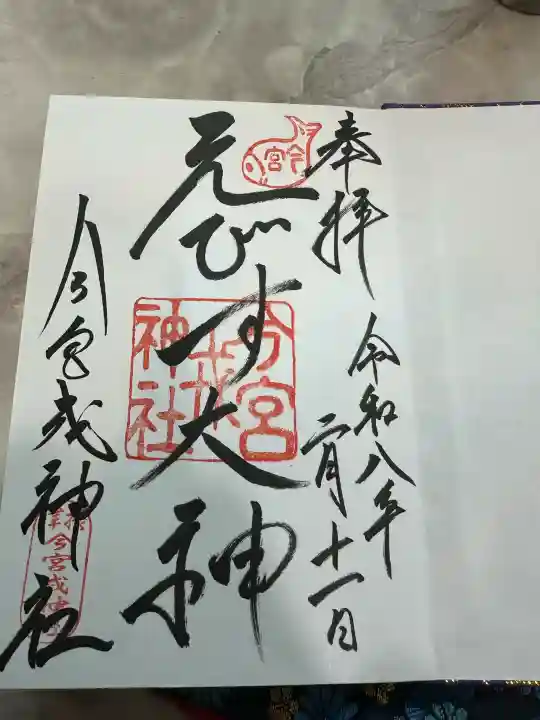 奉拝
令和八年
二月十一日
今宮
えびす大神
今宮
戎
神社
今宮戎神社
今宮戎神社